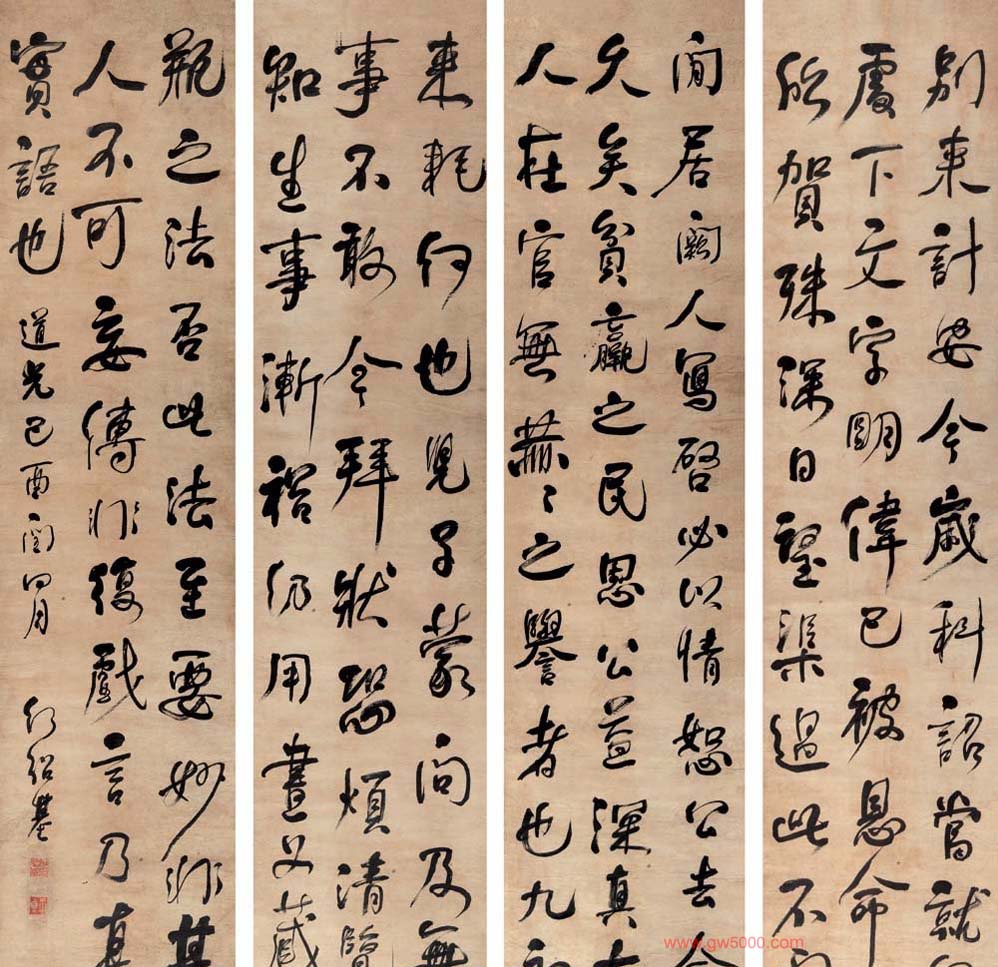 别来计安今歲科詔當就
處下文字明偉已被恩命
賀殊深日望渠過此不
闲居闕人寫啓必以情恕公去今
久矣貧羸之民思公益深真
人在官無赫〻之譽者也九
来耗何也兒子蒙问及無
事不敢令拜狀恐煩清
知生事漸裕仍用畫叉藏
瓶之法否此法至要妙非其
人不可妄傳非復戲言乃真
實語也 道光己酉闰四月 何绍基
www.gw5000.com